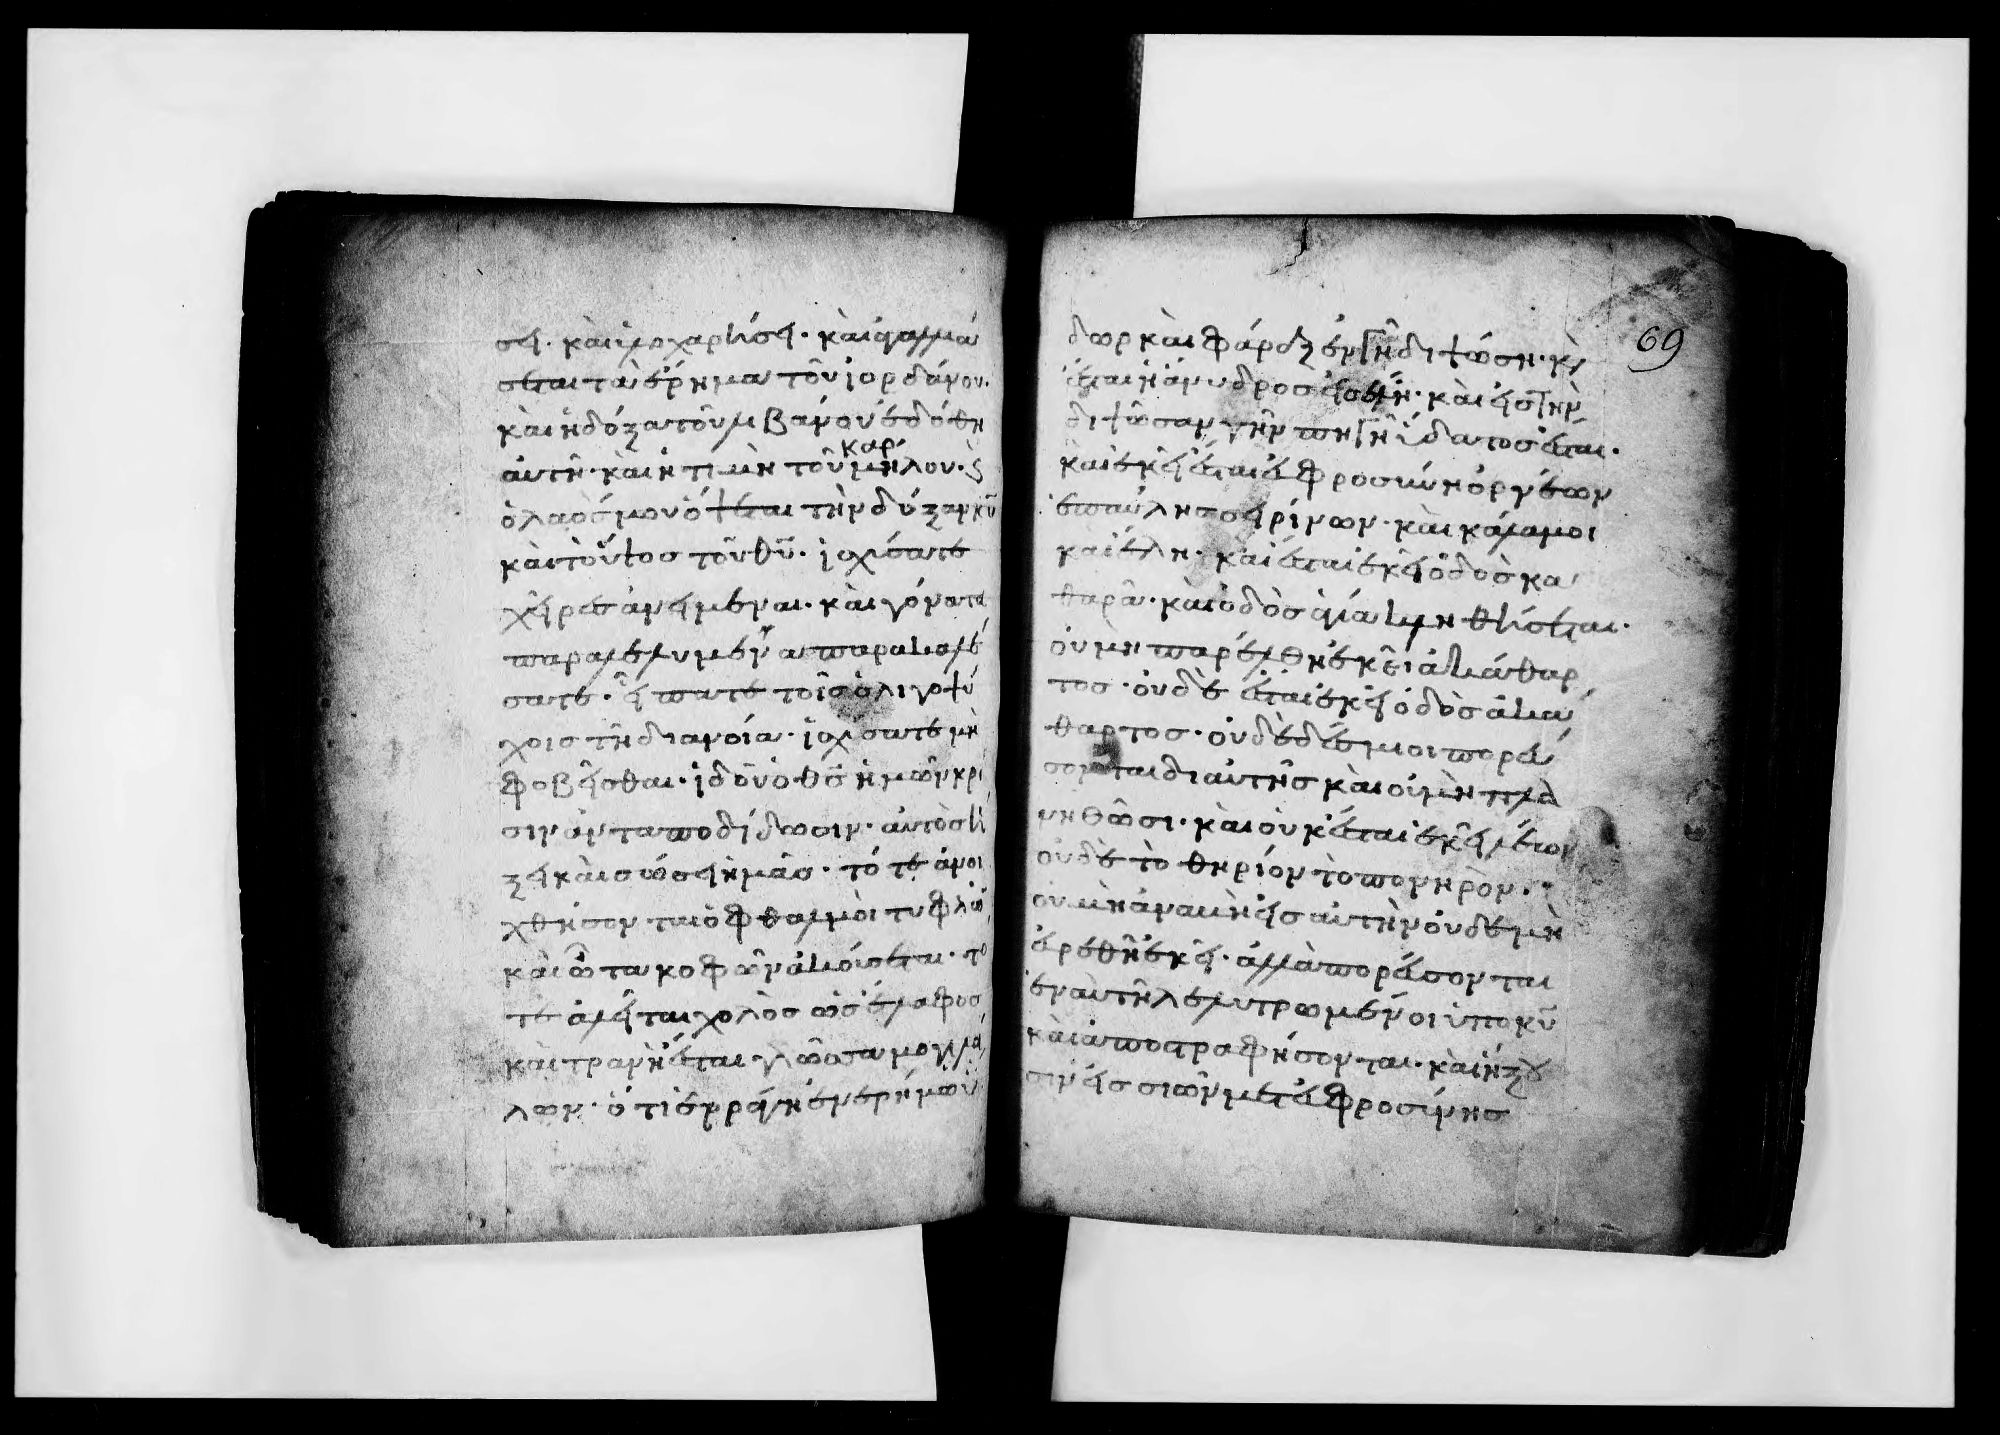 σει. καὶ ἱλοχαρήσει. καὶ ἀγαλλιά
σεται τὰ ἔρημα τοῦ ἰορδάνου.
καὶ ἡ δόξα τοῦ λιβάνου ἐδόθη
αὐτῆ. καὶ ἡ τιμὴ τοῦ καρμήλου. ϛ
ὁ λαόσ μου ὄψεται τὴν δόξαν κυ
καὶ τὸ ὕψοσ τοῦ θυ. ἰσχύσατε
χεῖρεσ ἀνειμέναι. καὶ γόνατα
παραλελυμένα παρακαλέ
σατε. εἴπατε τοῖσ ὀλιγοψύ
χοισ τῆ διανοία. ἰσχύσατε μὴ
φοβεῖσθαι. ἰδοῦ ὁ θσ ἡμῶν κρι
σιν ἀνταποδίδωσιν. αὐτὸσ ἥ
ξει καὶ σώσει ἡμᾶσ. τότε ἀνοι
χθήσονται ὀφθαλμοὶ τυφλῶ
καὶ ὦτα κοφῶν ἀκούσεται. το
τε ἁλεῖται χολὸσ ὡσ ἔλαφοσ
καὶ τρανὴ ἔσται γλῶσσα μογιλά
λων. ὅτι ἐρράγη ἐν ἐρήμω ὕ
69
δωρ καὶ φάραξ ἐν γῆ διψώση. κ
ἔσται ἡ ἄνυδροσ εἰσ ἕλη. καὶ εἰσ τὴν
διψῶσαν γῆν πηγῆ ὕδατοσ ἔσται.
καὶ ἐκεῖ ἔσται εὐφροσύνη ὀρνέων
ἐπαύλησ σειρίνων. καὶ κάλαμοι
καὶ ἕλη. καὶ ἔσται ἐκεῖ ὁδὸσ κα
θαρᾶ. καὶ ὁδὸσ ἁγία κληθήσεται.
οὐ μὴ παρέλθη ἐκεῖ ἀκάθαρ
τοσ. οὐδὲ ἔσται ἐκεῖ ὁδὸσ ἀκά
θαρτοσ. οὐδὲ δέσμιοι πορεύ
σονται δι αὐτῆσ καὶ οὐ μὴ πλα
νηθῶσι. καὶ οὐκ ἔσται ἐκεῖ λέων
οὐδὲ τὸ θηρίον τὸ πονηρὸν.
οὐ μὴ ἀναβῆ εἰσ αὐτὴν οὐδὲ μὴ
εὑρεθῆ ἐκεῖ. ἀλλὰ πορεύσονται
ἐν αὐτῆ λελυτρωμένοι ὑπο κυ
καὶ ἀποστραφήσονται. καὶ ἥξου
σιν εἰσ σιῶν μετ εὐφροσύνησ